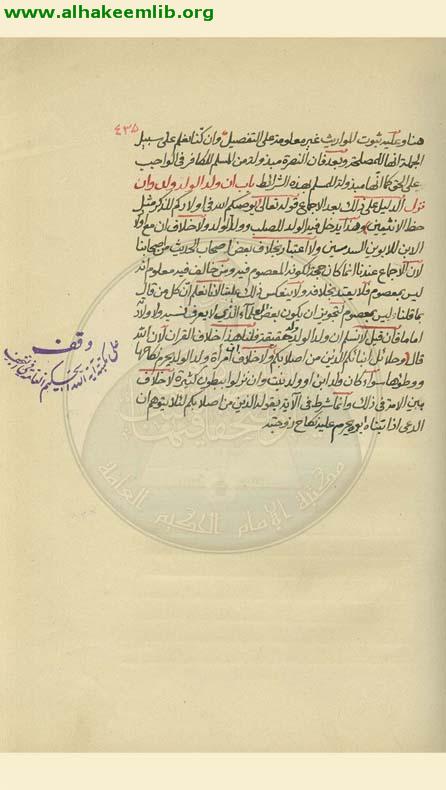 www.alhakeemlib.org
٤٣٨
هنا وعليه ثبوت للوارث غير معلومة على التفصيل وان كنا نعلم على سبيل
الجملة انها لمصلحة وبعد فان النصرة مبذولة من المسلم للكافر في الواجب
على الحق كما انها مبذولة للمسلم بهذه الشرائط باب ان ولد الولد ولد وان
نزل الدليل على ذلك بعد الاجماع قوله تعالى يوصيكم الله في اولادكم للذكر مثل
حظ الانثيين وهذا يدخل فيه الولد للصلب وولد الولد ولا خلاف ان مع ولد
الابن للابوين السدسين ولا اعتبار بخلاف بعض اصحاب الحديث من اصحابنا
لان الاجماع عندنا انما كان حجة لكون المعصوم فيه ومن خالف فيه معلوم انه
ليس بمعصوم فلا يعتد بخلافه ولا ينعكس ذلك علينا لانا نعلم ان كل من قال
بما قلناه ليس بمعصوم لتجويز ان يكون بعض العلماء الذي لا يعرف نسبه ولا ولادته
اماما فان قيل لا نسلم ان ولد الولد ولد حقيقة قلنا هذا خلاف القران لان الله
قال وحلائل ابنائكم الذين من اصلابكم ولا خلاف ان امرأة ولد الولد يحرم نكاحها
ووطؤها سواء كان ولد ابن او ولد بنت وان نزلوا ببطون كثيرة لا خلاف
بين الامة في ذلك وانما شرط في الآية بقوله الذين من اصلابكم لئلا يتوهم ان
الدعي اذا تبناه يحرم عليه نكاح زوجته
وقف
على مكتبة آية الله الحكيم العامة في النجف
مكتبة الإمام الحكيم العامة